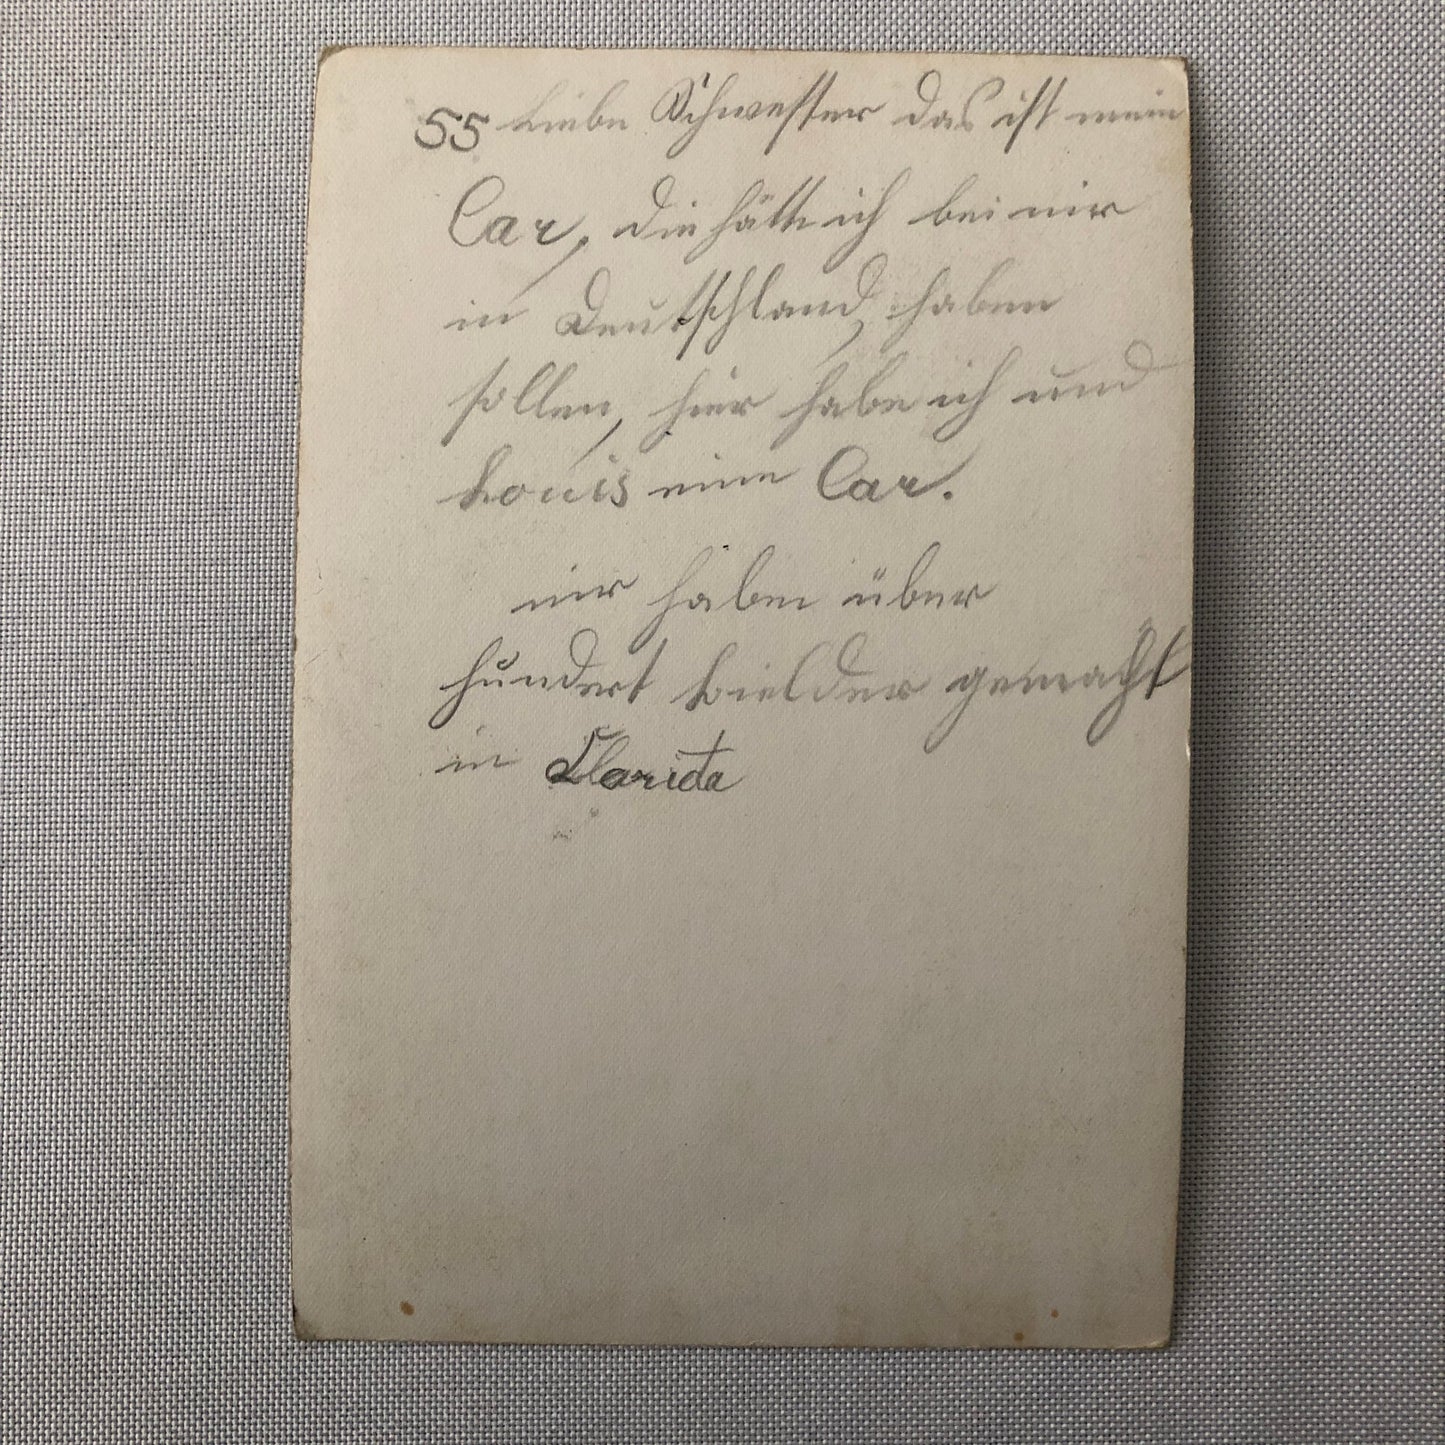 55 Liebe Schwester das ist mein
Car, die hätte ich bei mir
in Deutschland, haben
sollen, hier habe ich und
Louis eine Car.
mir haben über
hundert bielder gemacht
in Florida